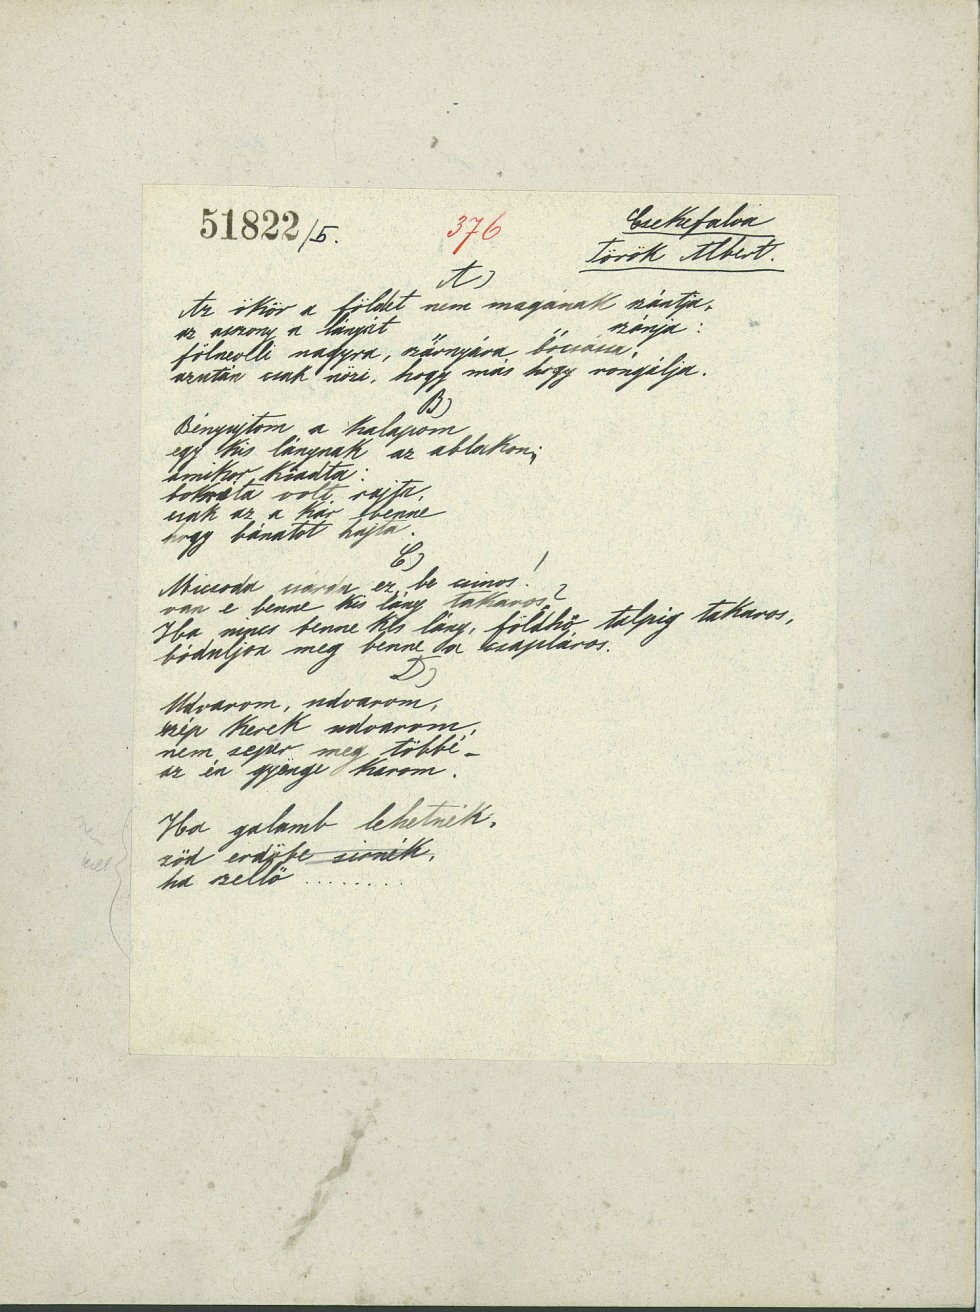 51822/5.
376
Csekefalva
Török Albert.
A)
Az ökör a földet nem magának szántja,
az asszony a lányát szánja:
fölneveli nagyra, szárnyára bocsássa,
azután csak nézi, hogy más hogy rongálja.
B)
Bényujtom a kalapom
egy kis lánynak az ablakon;
amikor kiadta:
bokréta volt rajta,
csak az a kár benne
hogy bánatot hajta.
C)
Micsoda csárda ez, be csinos!
van e benne kis lány takaros?
Ha nincs benne kis lány, földhö talpig takaros,
bóduljon meg benne a csapláros.
D)
Udvarom, udvarom,
szép kerek udvarom,
nem seper meg többé
az én gyönge karom.
Ha galamb lehetnék,
zöd erdőbe sirnék,
ha szellő ........